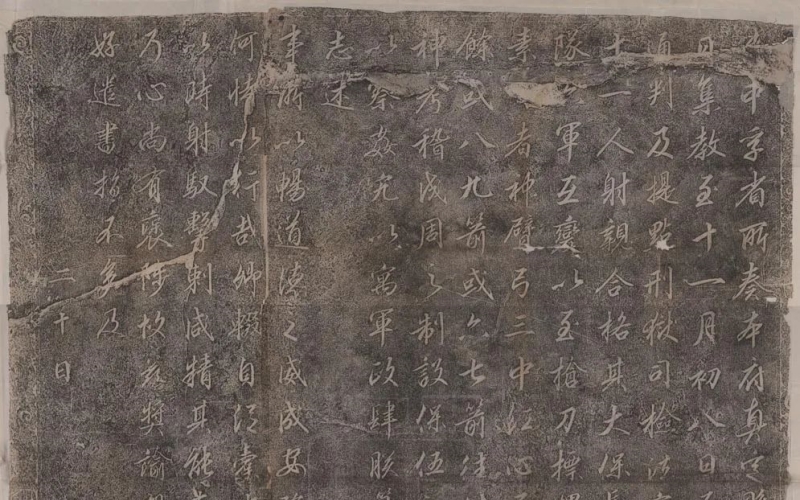 中孚省所奏本府真定
日集教至十一月初八日
通判及提點刑獄司檢法
十一人射親合格其大保長
隊 軍互變以至槍刀標
素 者神臂弓三中紅心
餘或八九箭或六七箭
神考稽成周之制設保伍
以察姦宄以寓軍政肆朕
志述
事所以暢道德之威成安
何恃以行哉卿輟自從
以時射馭擊刺咸精其能
乃心尚有褒陟故茲獎諭
好遣書指不多及
二十日